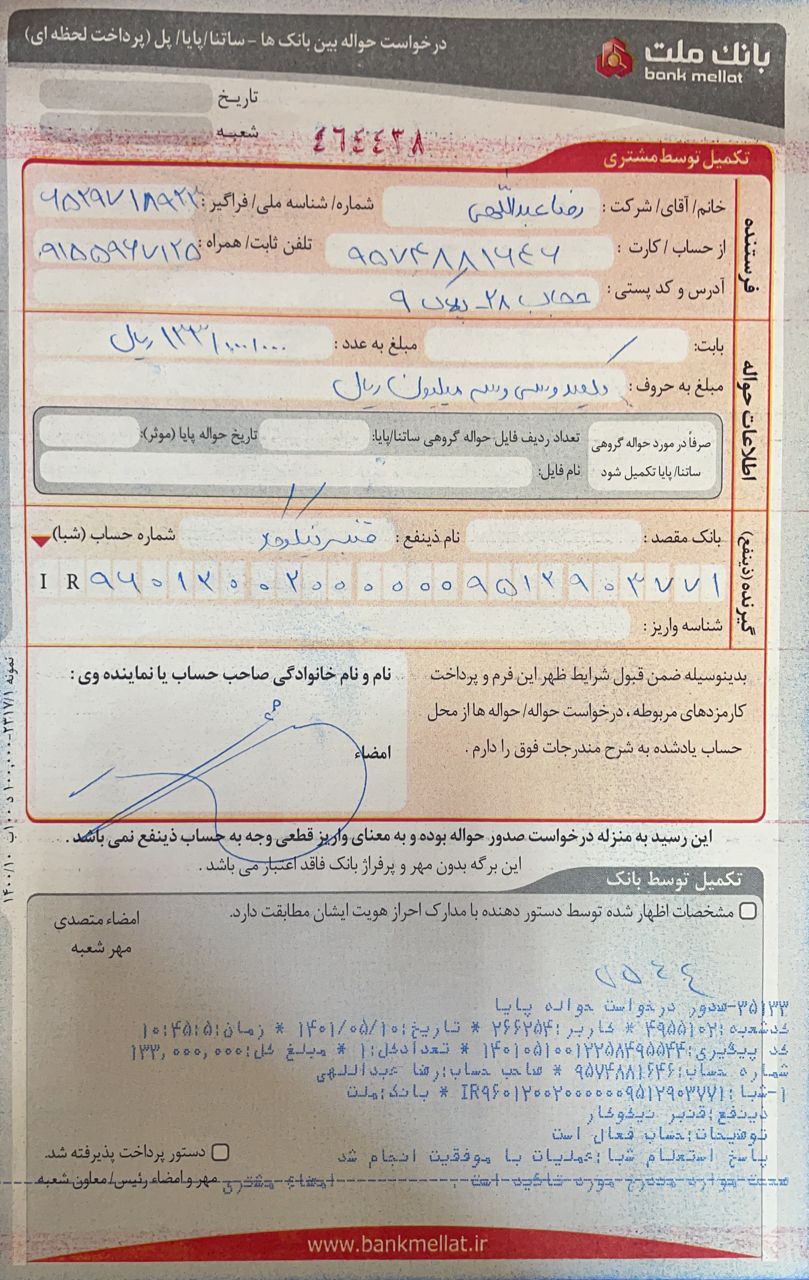 بانک ملت
bank mellat
درخواست حواله بین بانک ها - ساتنا/پایا/ پل (پرداخت لحظه ای)
تاریخ
شعبه
٤٦٤٤٣٨
تکمیل توسط مشتری
فرستنده
خانم/ آقای/ شرکت : رضا عبداللهی شماره/ شناسه ملی/ فراگیر :
از حساب / کارت : ۹۵۷۴۸۸۱۶۴۶ تلفن ثابت/ همراه :
آدرس و کد پستی : حجاب ۲۸ - پلاک ۹
اطلاعات حواله
بابت : مبلغ به عدد : ۱۳۳/۰۰۰/۰۰۰ ریال
مبلغ به حروف : یکصد و سی و سه میلیون ریال
صرفاً در مورد حواله گروهی ساتنا/ پایا تکمیل شود
تعداد ردیف فایل حواله گروهی ساتنا/پایا: تاریخ حواله پایا (موثر):
نام فایل:
گیرنده (ذینفع)
بانک مقصد : نام ذینفع : قنبر نیکوکار شماره حساب (شبا)
IR ۹۶۰۱۲۰۰۲۰۰۰۰۰۰۰۹۵۱۲۹۰۳۷۷۱
شناسه واریز :
بدینوسیله ضمن قبول شرایط ظهر این فرم و پرداخت
کارمزدهای مربوطه ، درخواست حواله/ حواله ها از محل
حساب یادشده به شرح مندرجات فوق را دارم .
نام و نام خانوادگی صاحب حساب یا نماینده وی :
امضاء
این رسید به منزله درخواست صدور حواله بوده و به معنای واریز قطعی وجه به حساب ذینفع نمی باشد .
این برگه بدون مهر و پرفراژ بانک فاقد اعتبار می باشد .
تکمیل توسط بانک
مشخصات اظهار شده توسط دستور دهنده با مدارک احراز هویت ایشان مطابقت دارد.
امضاء متصدی
مهر شعبه
۳۵۱۳۳-صدور درخواست حواله پایا
کدشعبه:۴۹۵۵۱۰۲ * کاربر:۲۶۶۲۵۴ * تاریخ:۱۴۰۱/۰۵/۱۰ * زمان:۱۰:۴۵:۵
کد پیگیری:۱۴۰۱۰۵۱۰۰۱۲۲۵۸۴۹۵۵۴۴ * تعدادکل:۱ * مبلغ کل:۱۳۳,۰۰۰,۰۰۰
شماره حساب:۹۵۷۴۸۸۱۶۴۶ * صاحب حساب:رضا عبداللهی
۱-شبا:IR۹۶۰۱۲۰۰۲۰۰۰۰۰۰۰۹۵۱۲۹۰۳۷۷۱ * بانک:ملت
ذینفع:قنبر نیکوکار
توضیحات:حساب فعال است
پاسخ استعلام شبا:عملیات با موفقیت انجام شد
صحت موارد مندرج مورد تاکید است . امضاء مشتری
دستور پرداخت پذیرفته شد.
مهر و امضاء رئیس/ معاون شعبه
www.bankmellat.ir